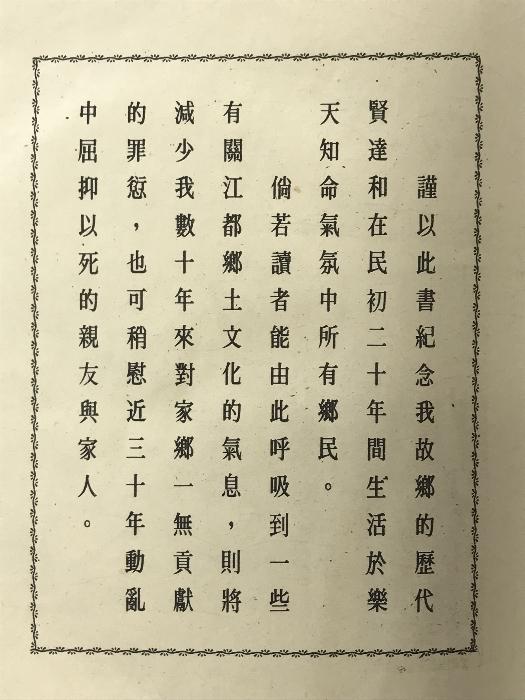 謹以此書紀念我故鄉的歷代
賢達和在民初二十年間生活於樂
天知命氣氛中所有鄉民。
倘若讀者能由此呼吸到一些
有關江都鄉土文化的氣息，則將
減少我數十年來對家鄉一無貢獻
的罪愆，也可稍慰近三十年動亂
中屈抑以死的親友與家人。